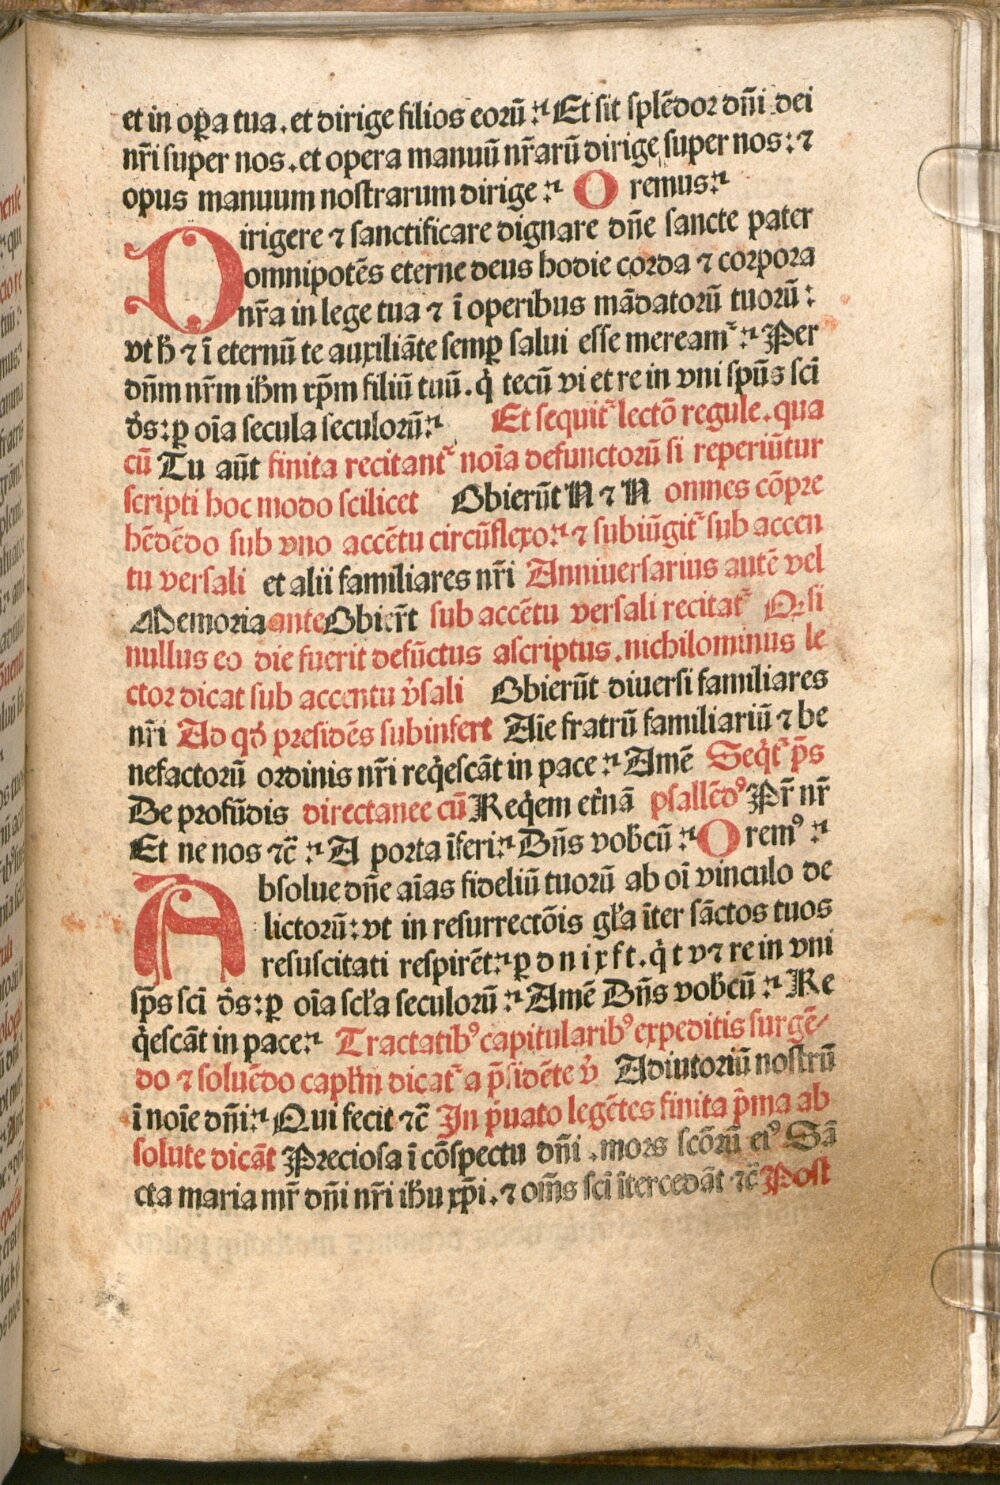 et in oꝑa tua. et dirige filios eorū :ᷓ Et sit splēdor dn̄i dei
nr̄i super nos. et opera manuū nr̄arū dirige super nos: ⁊
opus manuum nostrarum dirige : Oremus :
Dirigere ⁊ sanctificare dignare dn̄e sancte pater
omnipotēs eterne deus hodie corda ⁊ corpora
nr̄a in lege tua ⁊ ī operibus mādatorū tuorū :
vt h̄ ⁊ ī eternū te auxiliāte semꝑ salui esse mereamᷣ : Per
dn̄m nr̄m ih̄m xp̄m filiū tuū. q̇ tecū vi et re in vni spūs scī
d̄s: ꝑ oīa secula seculorū : Et sequitᷣ lectō regule. qua
cū Tu aūt finita recitantᷣ noīa defunctorū si reperiūtur
scripti hoc modo scilicet Obierūt N ⁊ N omnes cōpre
hēdēdo sub vno accētu circūflexo : ⁊ subiūgitᷣ sub accen
tu versali et alii familiares nr̄i Anniuersarius autē vel
Memoria ante Obier̄t sub accētu versali recitatᷣ Qꝛ si
nullus eo die fuerit defūctus ascriptus. nichilominus le
ctor dicat sub accentu v̓sali Obierūt diuersi familiares
nr̄i Ad qd̓ presidēs subinfert Aīe fratrū familiariū ⁊ be
nefactorū ordinis nr̄i req̇escāt in pace : Amē Seq̇tᷣ p̄s
De profūdis directanee cū Req̇em et̓nā psallēdꝰ Pr̄ nr̄
Et ne nos ⁊c̄ : A porta īferi : Dn̄s vobcū : Oremꝰ :
Absolue dn̄e aīas fideliū tuorū ab oī vinculo de
lictorū: vt in resurrectōis gl̄a īter sāctos tuos
resuscitati respirēt : ꝑ d n i x f t. q̇ t v ⁊ re in vni
sp̄s scī d̄s: ꝑ oīa scl̄a seculorū : Amē Dn̄s vobcū : Re
q̇escāt in pace : Tractatibꝰ capitularibꝰ expeditis surgē-
do ⁊ soluēdo capl̄m dicatᷣ a p̄sidēte v̓ Adiutoriū nostrū
ī noīe dn̄i : Qui fecit ⁊c̄ In p̓uato legētes finita p̓ma ab
solute dicāt Preciosa ī cōspectu dn̄i . mors scōrū eiꝰ Sā
cta maria mr̄ dn̄i nr̄i ih̄u xp̄i. ⁊ om̄s scī ītercedāt ⁊c̄ Post